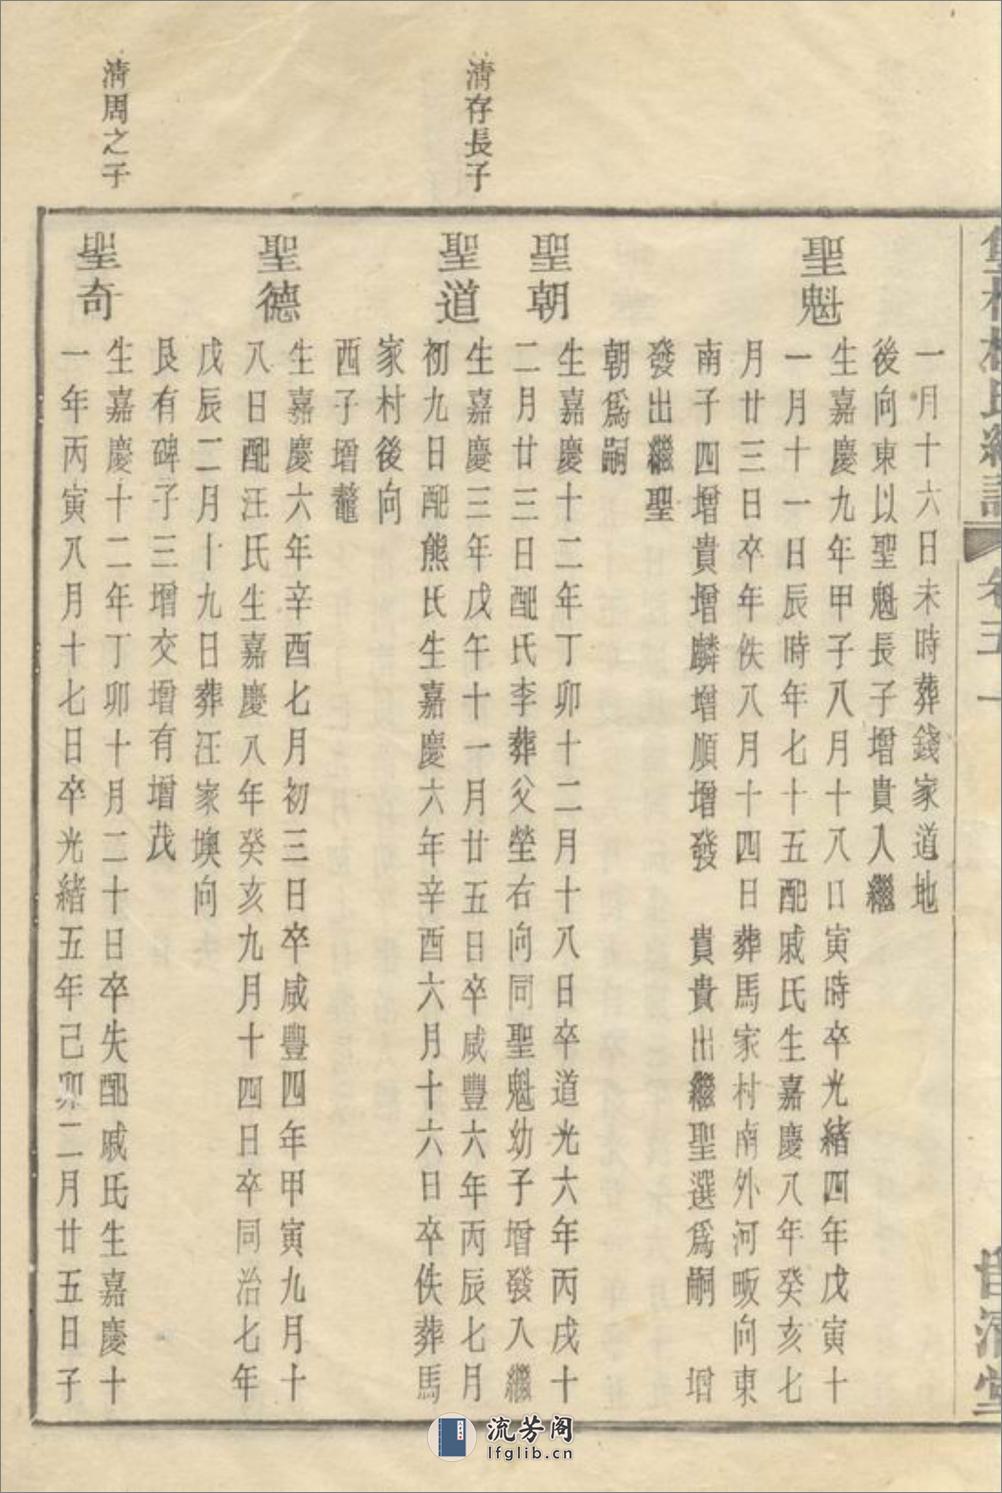 一月十六日未時葬錢家道地
後向東以聖魁長子增貴入繼
聖魁
生嘉慶九年甲子八月十八日寅時卒光緒四年戊寅十
一月十一日辰時年七十五配戚氏生嘉慶八年癸亥七
月廿三日卒年佚八月十四日葬馬家村南外河畈向東
南子四增貴增麟增順增發 貴貴出繼聖選爲嗣 增
發出繼聖
朝爲嗣
聖朝
生嘉慶十二年丁卯十二月十八日卒道光六年丙戌十
二月廿三日配氏李葬父塋右向同聖魁幼子增發入繼
清存長子
聖道
生嘉慶三年戊午十一月廿五日卒咸豐六年丙辰七月
初九日配熊氏生嘉慶六年辛酉六月十六日卒佚葬馬
家村後向
西子增鼇
聖德
生嘉慶六年辛酉七月初三日卒咸豐四年甲寅九月十
八日配汪氏生嘉慶八年癸亥九月十四日卒同治七年
戊辰二月十九日葬汪家墺向
艮有碑子三增交增有增茂
清周之子
聖奇
生嘉慶十二年丁卯十月二十日卒失配戚氏生嘉慶十
一年丙寅八月十七日卒光緒五年己卯二月廿五日子
流芳阁
lfglib.cn